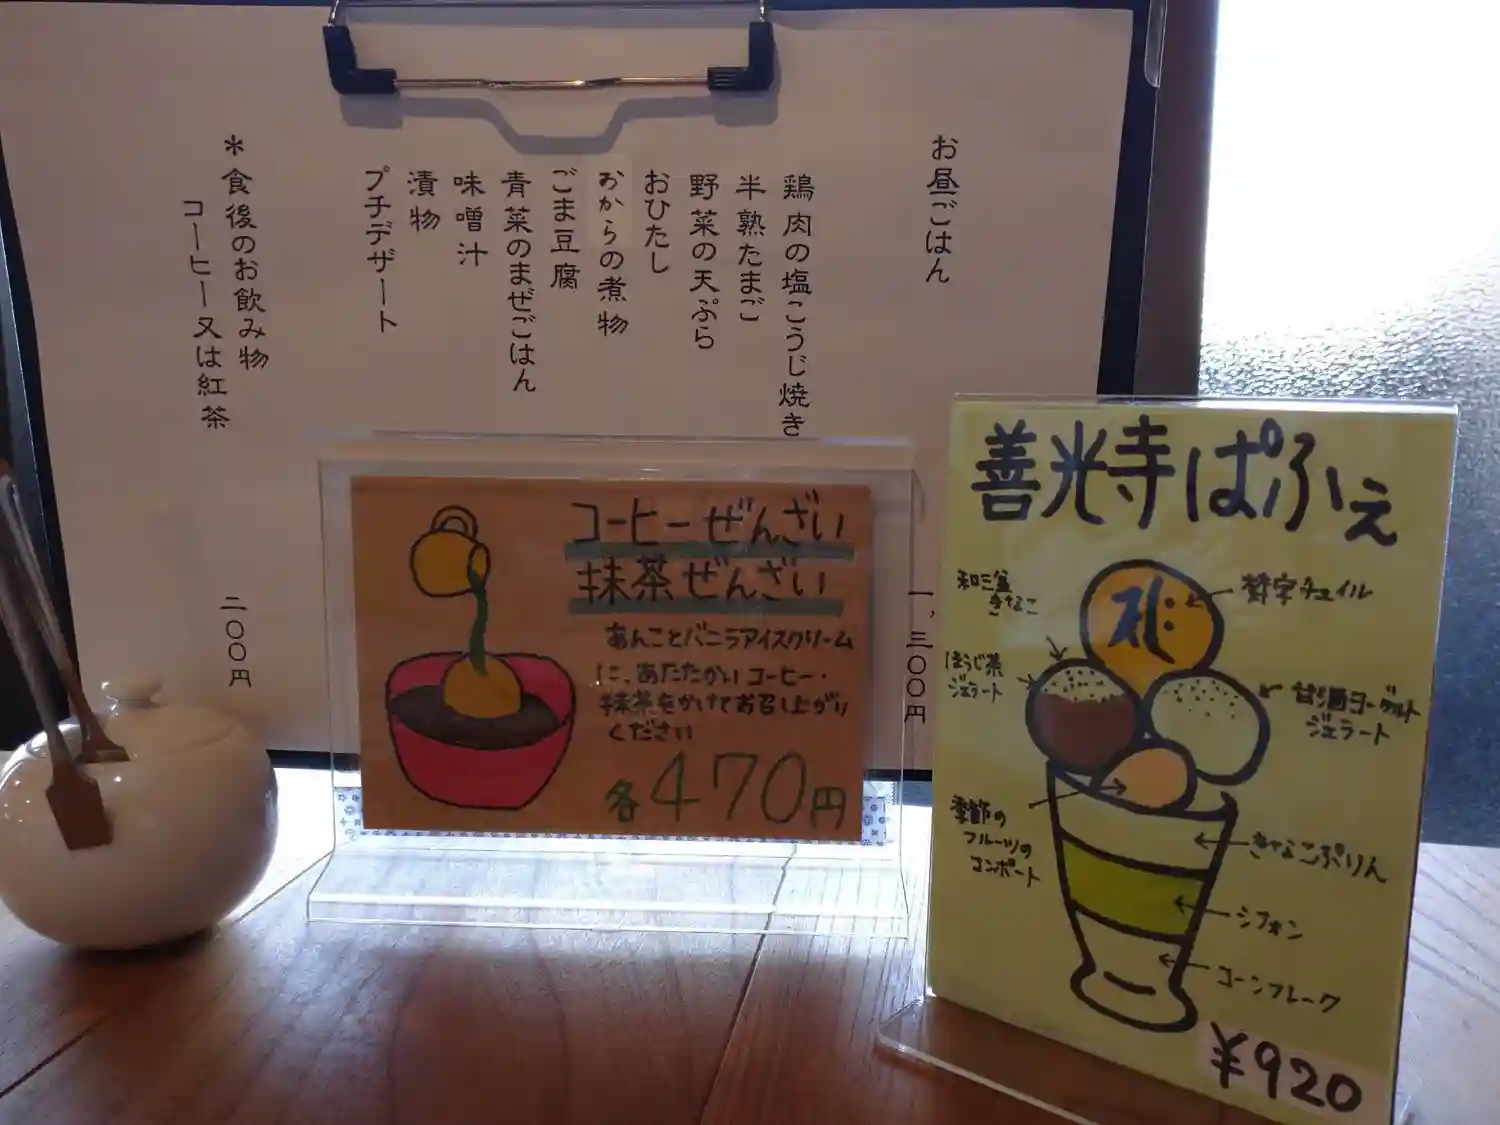 お昼ごはん
一,三〇〇円
鶏肉の塩こうじ焼き
半熟たまご
野菜の天ぷら
おひたし
おからの煮物
ごま豆腐
青菜のまぜごはん
味噌汁
漬物
プチデザート
＊食後のお飲み物
コーヒー又は紅茶
二〇〇円
コーヒーぜんざい
抹茶ぜんざい
あんことバニラアイスクリーム
に、あたたかいコーヒー・
抹茶をかけてお召し上がり
ください
各470円
善光寺ぱふぇ
和三盆
きなこ
ほうじ茶
ジェラート
季節の
フルーツの
コンポート
梵字チュイル
甘酒ヨーグルト
ジェラート
きなこぷりん
シフォン
コーンフレーク
¥920